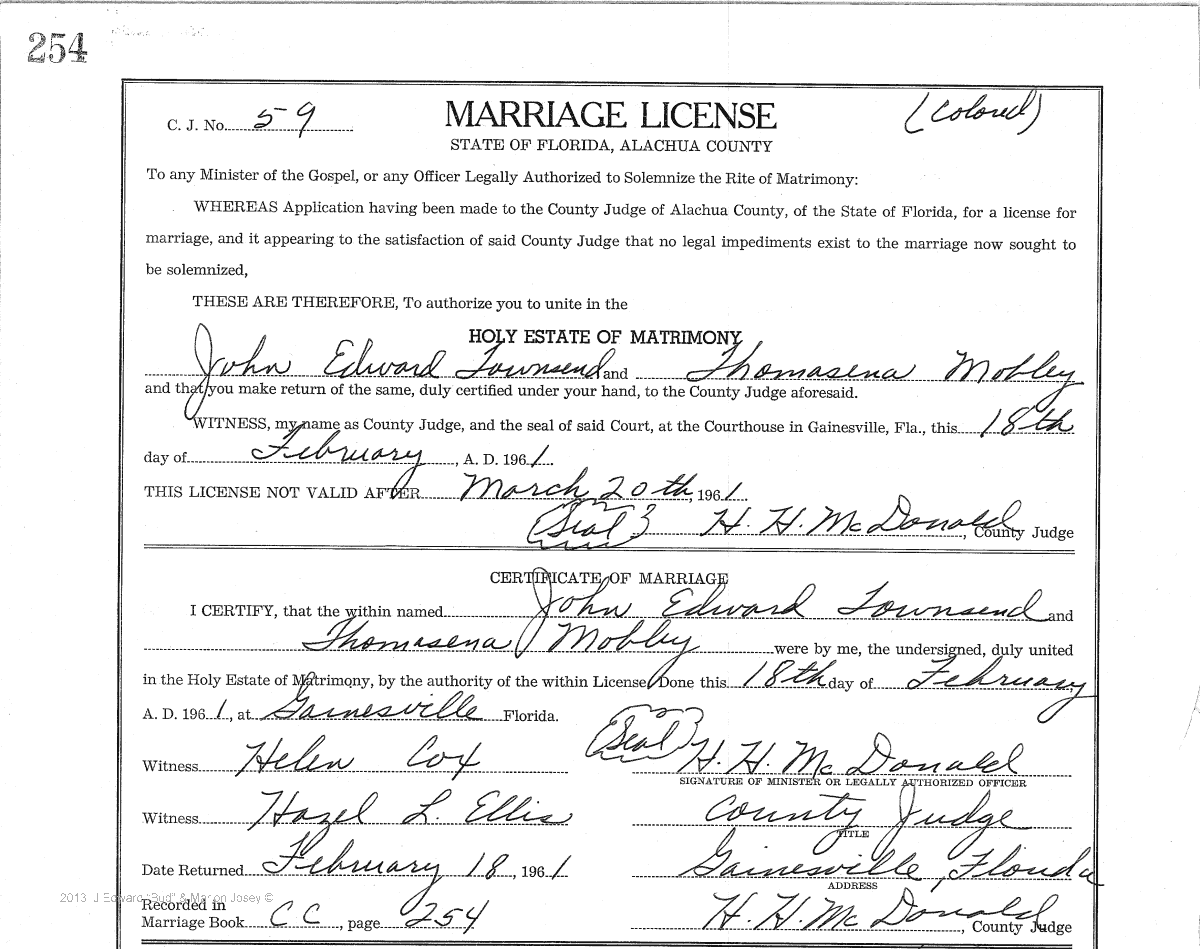 254
C. J. No. 59
MARRIAGE LICENSE
(Colored)
STATE OF FLORIDA, ALACHUA COUNTY
To any Minister of the Gospel, or any Officer Legally Authorized to Solemnize the Rite of Matrimony:
WHEREAS Application having been made to the County Judge of Alachua County, of the State of Florida, for a license for
marriage, and it appearing to the satisfaction of said County Judge that no legal impediments exist to the marriage now sought to
be solemnized,
THESE ARE THEREFORE, To authorize you to unite in the
HOLY ESTATE OF MATRIMONY
John Edward Townsend and Thomasena Mobley
and that you make return of the same, duly certified under your hand, to the County Judge aforesaid.
WITNESS, my name as County Judge, and the seal of said Court, at the Courthouse in Gainesville, Fla., this 18th
day of February, A. D. 1961.
THIS LICENSE NOT VALID AFTER March 20th, 1961.
(Seal) H. H. McDonald, County Judge
CERTIFICATE OF MARRIAGE
I CERTIFY, that the within named John Edward Townsend and
Thomasena Mobley were by me, the undersigned, duly united
in the Holy Estate of Matrimony, by the authority of the within License. Done this 18th day of February,
A. D. 1961, at Gainesville Florida.
Witness Helen Cox (Seal) H. H. McDonald
SIGNATURE OF MINISTER OR LEGALLY AUTHORIZED OFFICER
Witness Hazel L. Ellis County Judge
TITLE
Date Returned February 18, 1961 Gainesville, Florida
ADDRESS
2013 J Edward "Bud" & Marion Josey ©
Recorded in
Marriage Book CC, page 254 H. H. McDonald, County Judge